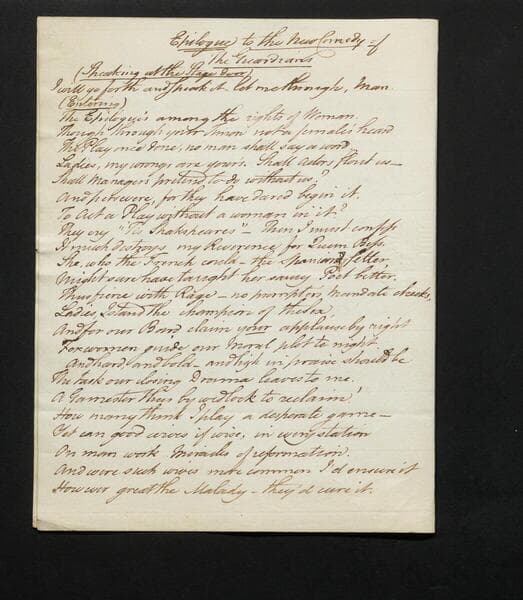 Epilogue to the New Comedy of
The Guardians
(Speaking at the Stage Door)
I will go forth and speak it. let me through, Man.
(Entering)
The Epilogue's among the rights of Woman.
Though through your Union not a female's heard
The Play once done, no man shall say a word
Ladies, my wrongs are yours. Shall Actors flout us—
Shall Managers pretend to do without us?
And yet were, for they have dared begin it.
To Act a Play without a woman in it?
They cry "Tis Shakspeares"— Then I must confess
It much destroys my Reverence for Queen Bess.
She, who the French could— the Spaniard fetter
Might sure have taught her saucy Poet better.
Thus fierce with Rage— no prompters mandate checks,
Ladies, I stand the champion of the sex
And for our Bard claim your applause by right
For women guide our Moral plot to night
And hard, and bold— and high in praise should be
The task our closing Drama leaves to me.
A Gamester they by wedlock to reclaim
How many think I play a desperate game—
Yet can good wives if wise, in every station
On man work Miracles of reformation.
And were such wives more common I'd ensure it
However great the Malady— they'd cure it.